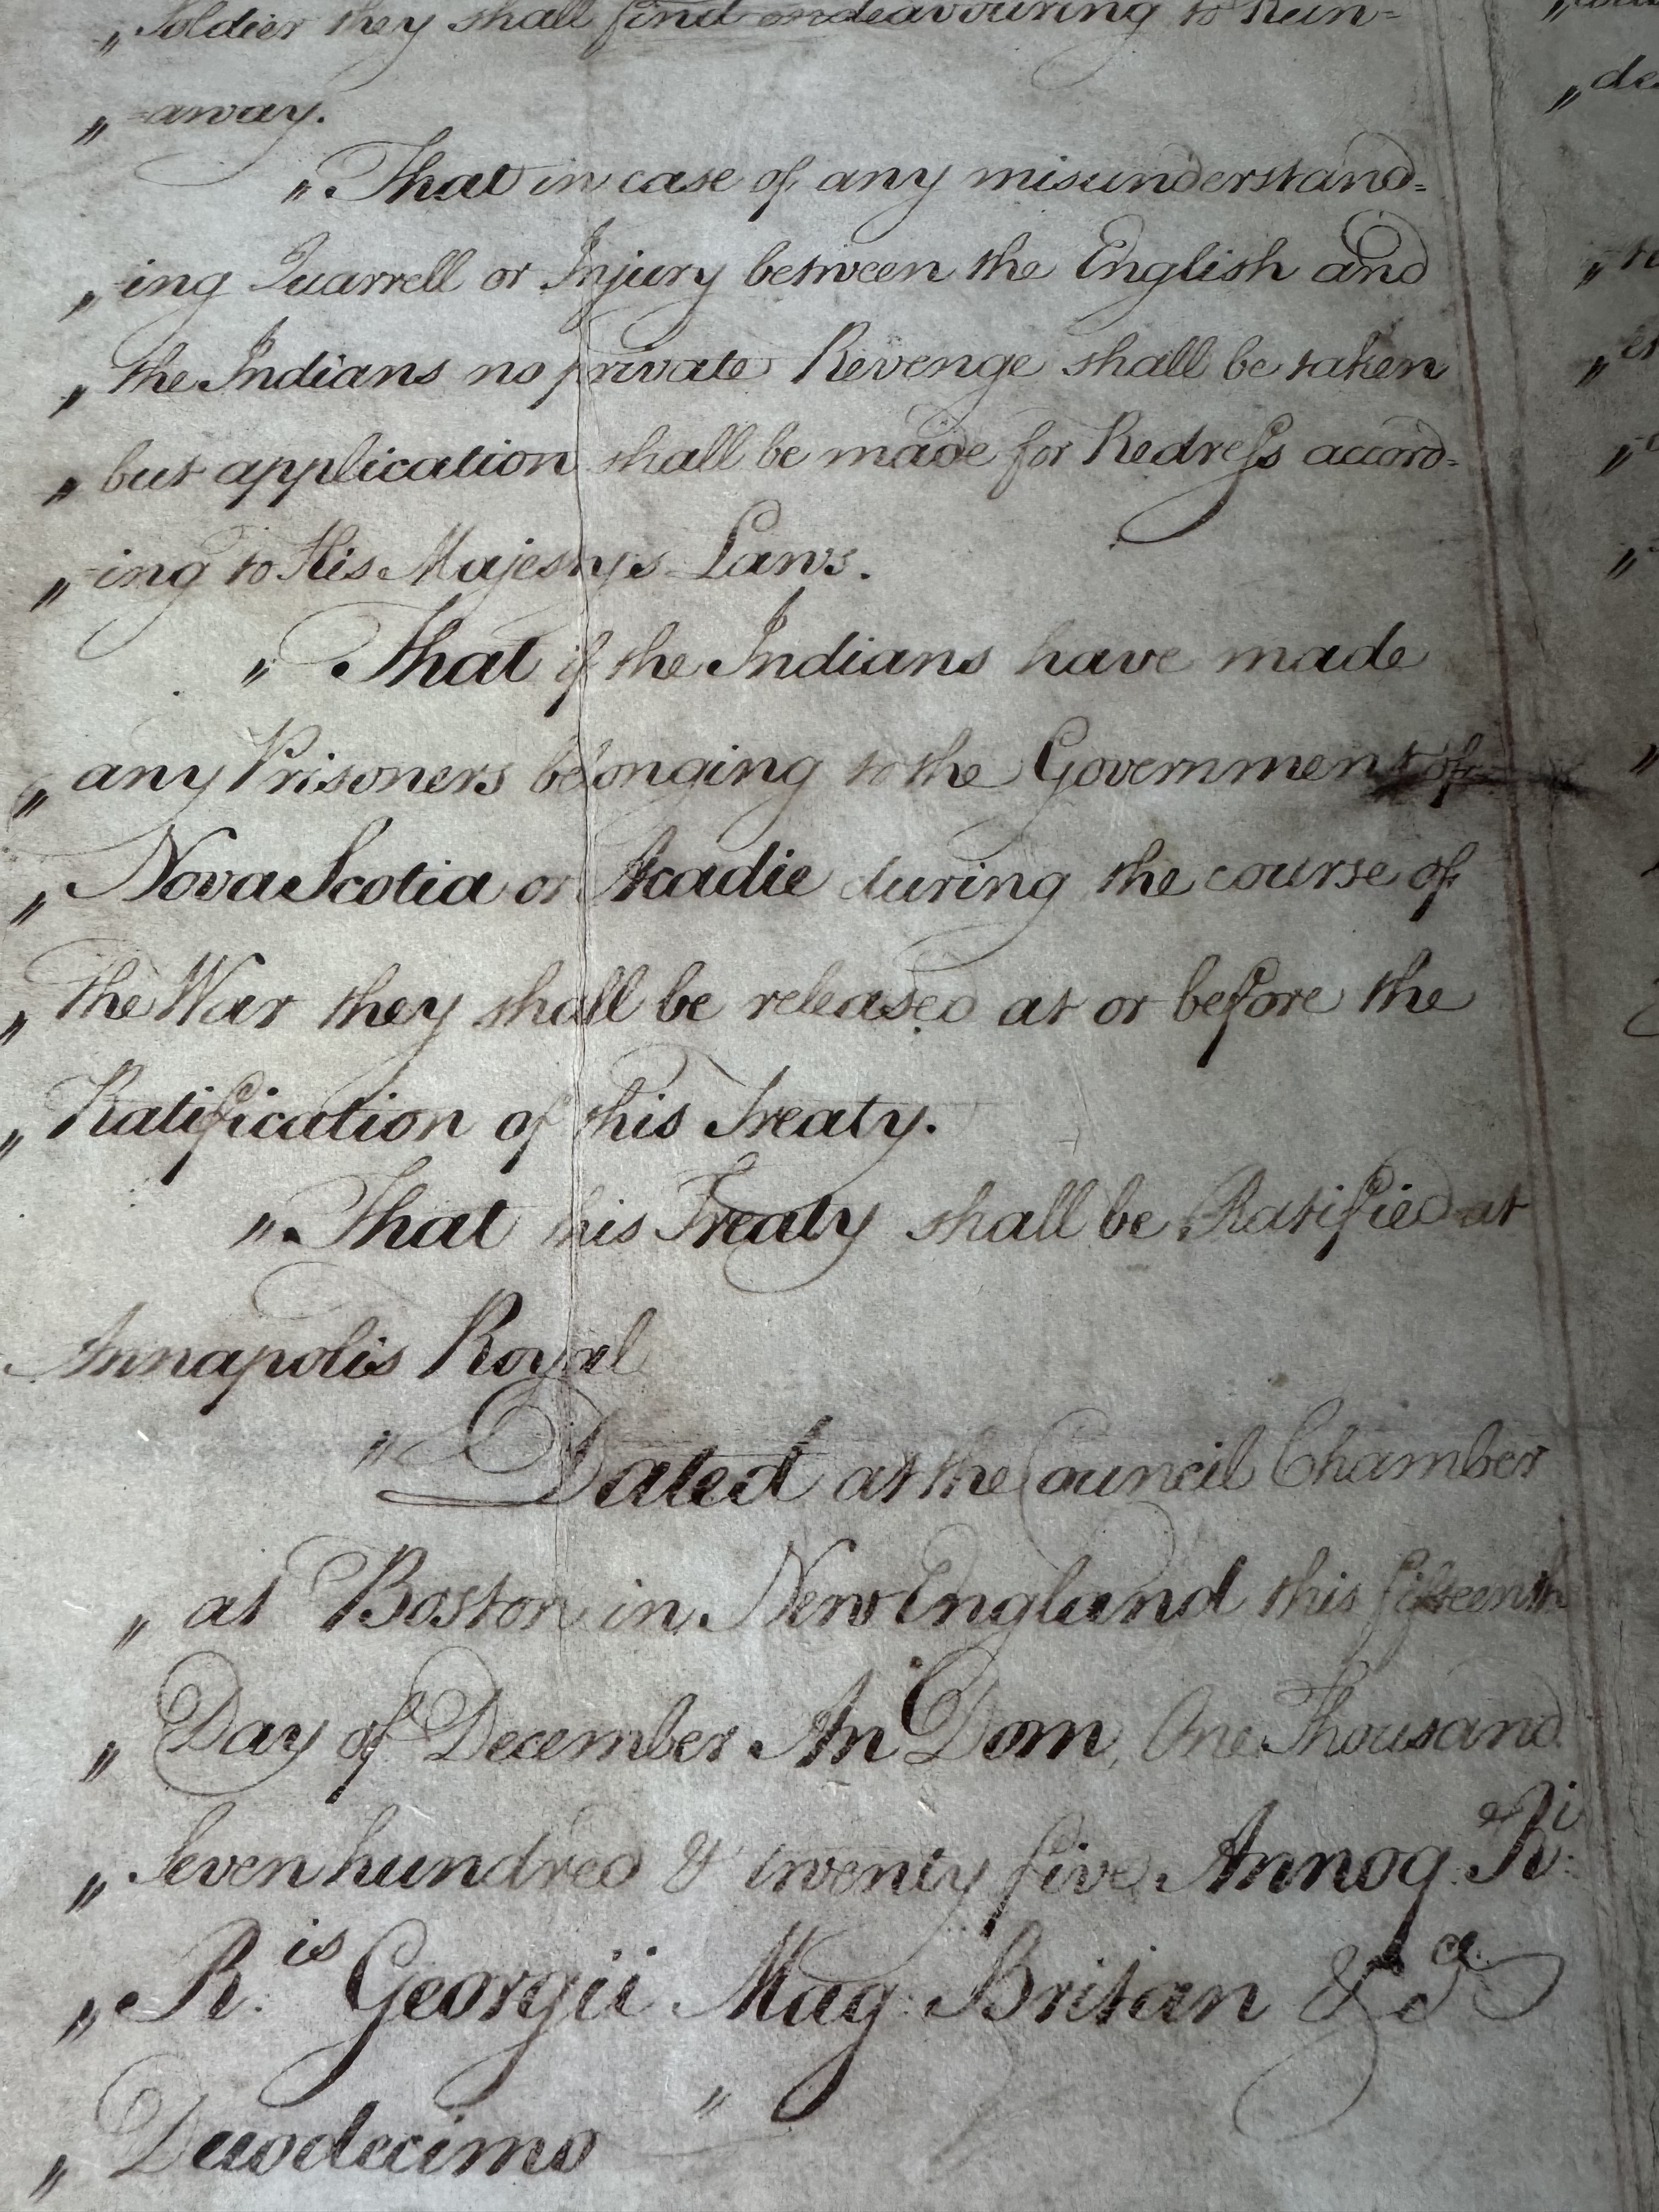 „ Soldier they shall find endeavouring to Run=
„ =away.
„ That in case of any misunderstand=
„ ing Quarrell or Injury between the English and
„ the Indians no private Revenge shall be taken
„ but application shall be made for Redreſs accord=
„ ing to His Majestys Laws.
„ That if the Indians have made
„ any Prisoners belonging to the Government of
„ Nova Scotia or Acadie during the course of
„ the War they shall be released at or before the
„ Ratification of this Treaty.
„ That this Treaty shall be Ratified at
Annapolis Royal
„ Dated at the Council Chamber
„ at Boston in New England this fifteenth
„ Day of December An Dom, One Thousand
„ Seven hundred & twenty five Annoq R:i
„ R:is Georgii Mag: Britan &ca
„ Duodecimo „